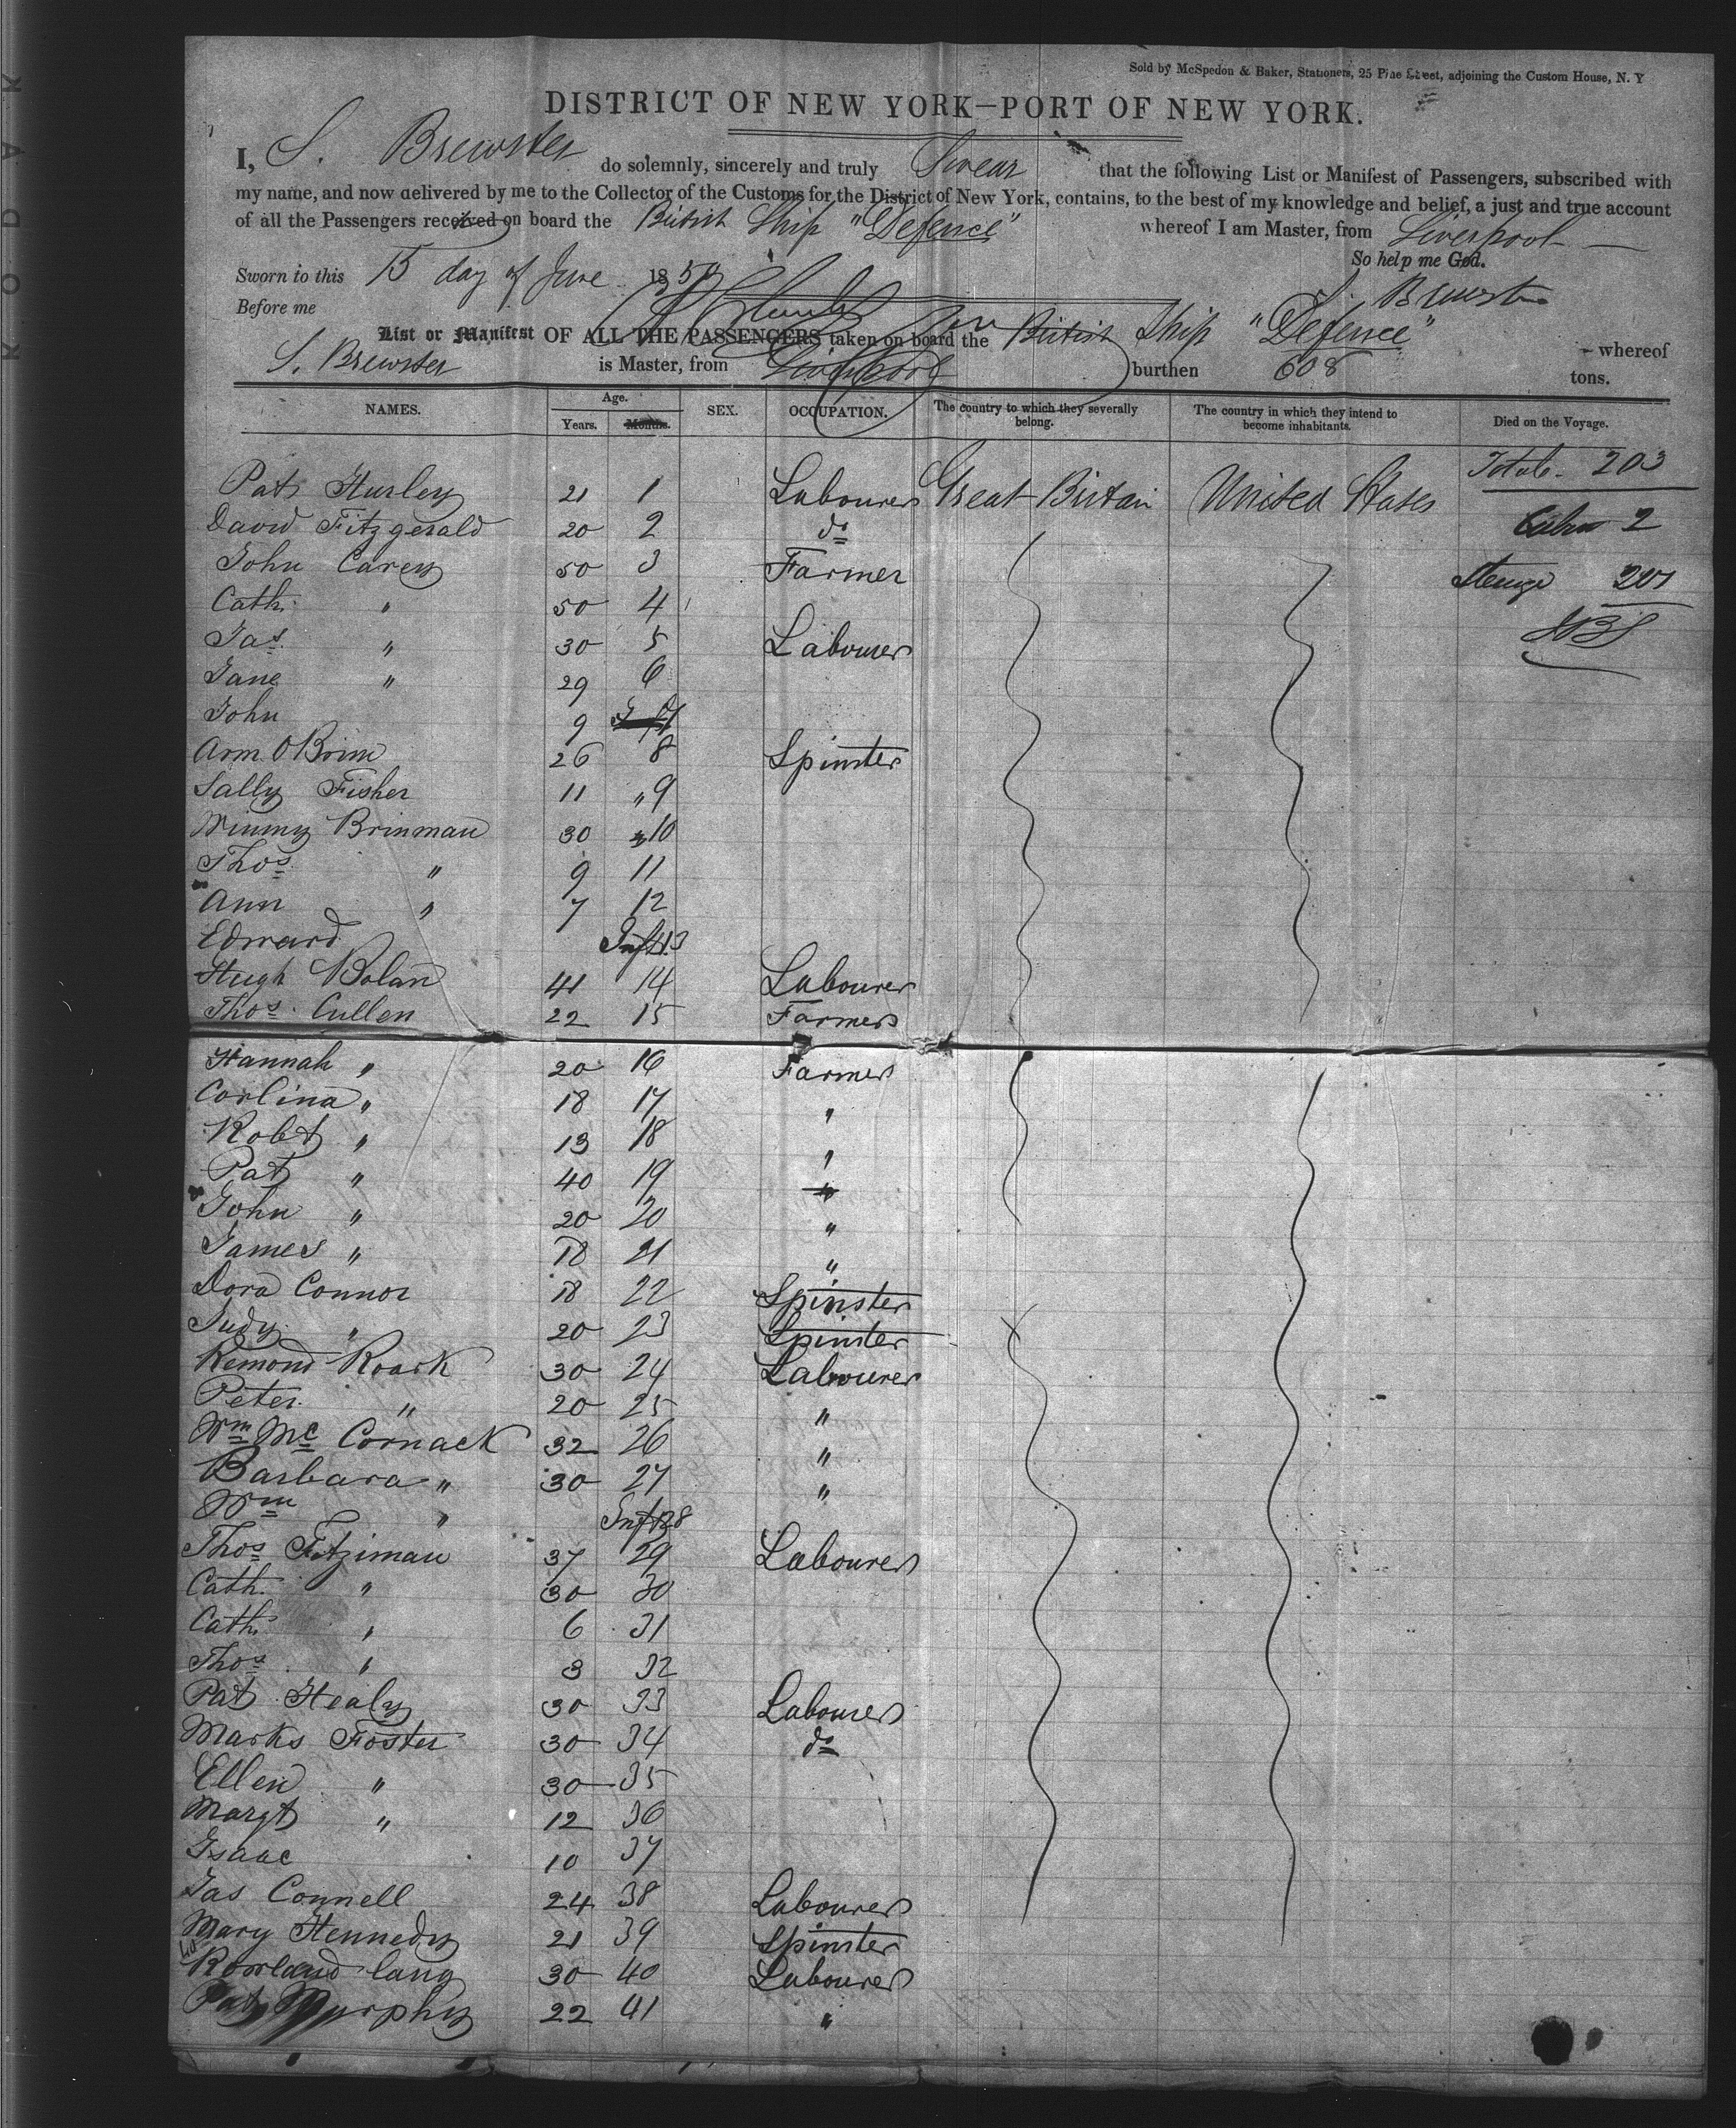 KODAK
Sold by McSpedon & Baker, Stationers, 25 Pine Street, adjoining the Custom House, N. Y
DISTRICT OF NEW YORK—PORT OF NEW YORK.
I, S. Brewster do solemnly, sincerely and truly Swear that the following List or Manifest of Passengers, subscribed with
my name, and now delivered by me to the Collector of the Customs for the District of New York, contains, to the best of my knowledge and belief, a just and true account
of all the Passengers received on board the British Ship "Defence" whereof I am Master, from Liverpool
So help me God.
Sworn to this 15 day of June 185
Before me S. Brewster
List or Manifest OF ALL THE PASSENGERS taken on board the British Ship "Defence" whereof
S. Brewster is Master, from Liverpool burthen 608 tons.
NAMES. Age. Years. Months. SEX. OCCUPATION. The country to which they severally belong. The country in which they intend to become inhabitants. Died on the Voyage.
Total 203
Pat Hurley 21 1 Labourer Great Britain United States
Cabin 2
David Fitzgerald 20 2 do
John Carey 50 3 Farmer
Steerage 201
Cath. " 50 4
Jas. " 30 5 Labourer
Jane " 29 6
John 9 7
Ann O Brine 26 8 Spinster
Sally Fisher 11 " 9
Winny Brinman 30 " 10
Thos " 9 11
Ann " 7 12
Edward Inft 13
Hugh Bolan 41 14 Labourer
Thos Cullen 22 15 Farmer
Hannah " 20 16 Farmer
Corlina " 18 17 "
Robt " 13 18 "
Pat " 40 19 "
John " 20 20 "
James " 18 21 "
Dora Connor 18 22 Spinster
Judy " 20 23 Spinster
Remond Roark 30 24 Labourer
Peter " 20 25 "
Wm Mc Cornack 32 26 "
Barbara " 30 27 "
Wm " Inft 28
Thos Fitziman 37 29 Labourer
Cath. " 30 30
Cath. " 6 31
Thos " 3 32
Pat Healy 30 33 Labourer
Marks Foster 30 34 do
Ellen " 30 35
Margt " 12 36
Isaac 10 37
Jas Connell 24 38 Labourer
Mary Hennedy 21 39 Spinster
Rowland lang 30 40 Labourer
Pat Murphy 22 41 "